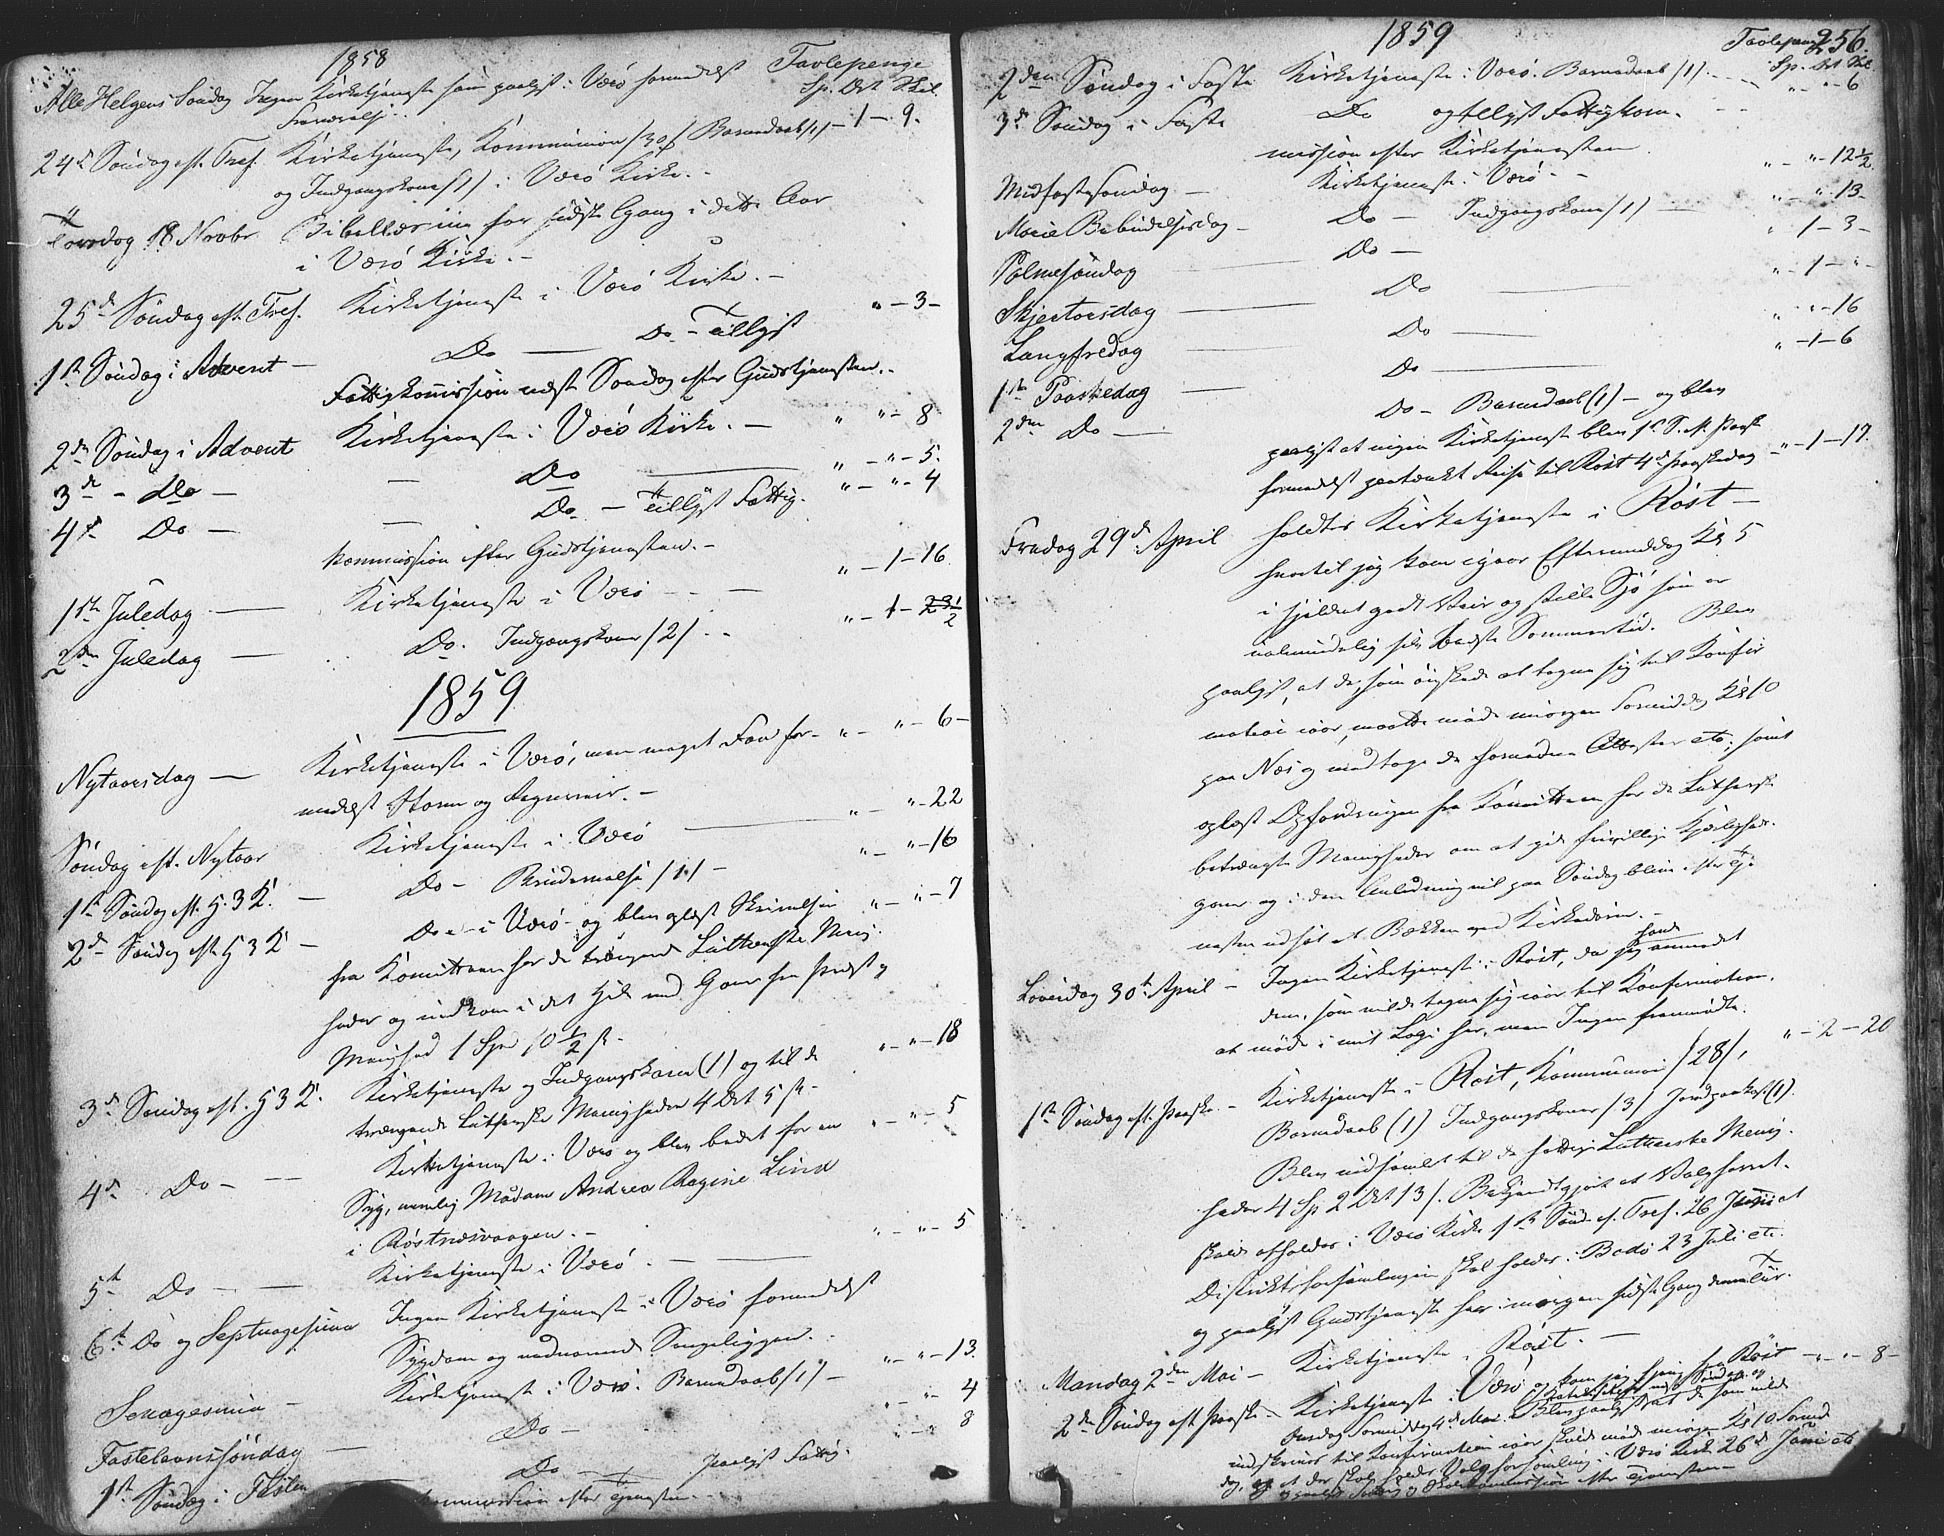 1858
Tavlepenge
Sp. Ort Skil.
Alle Helgens Søndag Ingen Kirketjeneste som paalyst i Værø formedelst
24d Søndag eft. Tref. Kirketjeneste, Kommunion /30/ Barnedaab /1/ – 1 – 9.
og Indgangskone (1) i Værø Kirke. –
Torsdag 18 Novbr Bibellæsning for sidste Gang i dette Aar
i Værø Kirke. –
25d Søndag eft. Tref. Kirketjeneste i Værø Kirke. –
" – 3 –
1ste Søndag i Advent – Do – Do – Tillyst
Fattigkommission næste Søndag efter Gudstjenesten. –
2den Søndag i Advent Kirketjeneste i Værø Kirke. – " " – 8
3de – do – – Do " – " – 5.
4de Do – – Do – Tillyst Fattig- " – " – 4
kommission efter Gudstjenesten. –
1ste Juledag – Kirketjeneste i Værø – – " – 1 – 16
2den Juledag – Do. Indgangskoner /2/ – "
1859
Nytaarsdag – Kirketjeneste i Værø, men meget Faa for- " – " – 6 –
medelst Storm og Regnveir. –
Søndag eft. Nytaar Kirketjeneste i Værø " – " – 22
1ste Søndag eft. H. 3 K. – Do – Brudevielse /1/ – " – " – 16
2d Søndag eft H 3 K – Do – i Værø – og blev oplæst Skrivelsen " – " – 7
fra Komitteen for de trængende Lutherske Menig-
heder og indkom i det Hele med Gaver fra Præst og
Menighed 1 Spd 10 1/2 s. –
3d Søndag eft. H 3 K. Kirketjeneste og Indgangskone (1) og til de " – " – 18
trængende Lutherske Menigheder 4 Ort 5 s. –
4d Do – – Kirketjeneste i Værø og blev bedet for en " – " – 5
Syg, nemlig Madam Andrea Regine Lind
i Røstnæsvaagen. –
5te Do – – Kirketjeneste i Værø. – " " – 5
6te Do og Septuagesima Ingen Kirketjeneste i Værø formedelst
Sygdom og vedvarende Sengeliggen.
Sexagesima – Kirketjeneste i Værø. Barnedaab /1/ – " – " – 13.
Fastelavnssøndag – Do – " 4
1ste Søndag i Fasten Do – Paalyst Fattig- 8
kommission efter Tjenesten. –
1859
Tavlepenge 256.
Sp. Ort Skil
2den Søndag i Faste Kirketjeneste i Værø. Barnedaab /1/ – " – " – 6
3d Søndag i Faste Do og tillyst Fattigkom-
mission efter Kirketjenesten.
Midfastesøndag – Kirketjeneste i Værø – – " – " – 12 1/2
Marie Bebudelsesdag – Do – Indgangskone /1/ – " – 13 –
Palmesøndag Do – " 1 – 3 –
Skjertorsdag Do " – 1 – " –
Langfredag Do " " – 16
1ste Paaskedag Do " – 1 – 6
2den Do – Do – Barnedaab (1) – og blev
paalyst at ingen Kirketjeneste blev 1st S. e. Paaske
formedelst paatænkt Reise til Røst 4d Paaskedag " – 1 – 17.
Fredag 29d April holdtes Kirketjeneste i Røst –
hvortil jeg kom igaar Eftermiddag Kl 5
i sjeldent godt Veir og stille Sjø som er
ualmindelig selv bedste Sommertid. Blev
paalyst, at de, som ønskede at tegne sig til Konfir
mation iaar, maatte møde imorgen Formiddag Kl 10
paa Næs og medtage de fornødne Attester etc; samt
oplæst Opfordringen fra Komitteen for de Lutherske
betrængte Menigheder om at yde frivillige Kjærligheds-
gaver og i den Anledning vil paa Søndag blive efter Tje-
nesten udsat et Bækken ved Kirkedøren. –
Løverdag 30te April – Ingen Kirketjeneste i Røst, da jeg havde anmodet
dem, som vilde tegne sig iaar til Konfirmation,
at møde i mit Logi her, men Ingen fremmødte.
1ste Søndag eft. Paaske – Kirketjeneste i Røst, Kommunion /28/, " – 2 – 20
Barnedaab (1) Indgangskoner /3/ Jordpaakast (1).
Blev indsamlet til de fattige Lutherske Menig-
heder 4 Sp 2 Ort 13 s. Bekjendtgjort at Valgforret-
skulde afholdes i Værø Kirke 1st Sønd. e. Tref. 26 Juni at
Distriktsforsamlingen skal holdes i Bodø 23 Juli etc.
og paalyst Gudstjeneste her imorgen sidste Gang denne Tur.
Mandag 2den Mai – Kirketjeneste i Røst. –
2den Søndag eft Paaske – Kirketjeneste i Værø og kom jeg hjem fra Røst " – " – 8 –
Onsdag Formiddag 4d Mai. Blev paalyst at de som vilde
indskrives til Konfirmation iaar skulde møde imorgen Kl 10 Formid
dag, og at der skal holdes Valgforsamling i Værø Kirke 26d Juni etc